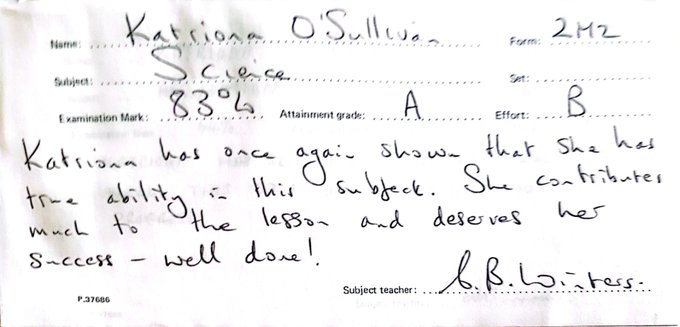 Name: Katriona O'Sullivan Form: 2M2
Subject: Science Set:
Examination Mark: 83% Attainment grade: A Effort: B
Katriona has once again shown that she has
true ability in this subject. She contributes
much to the lesson and deserves her
success – well done!
Subject teacher: B. Winters.
P.37686